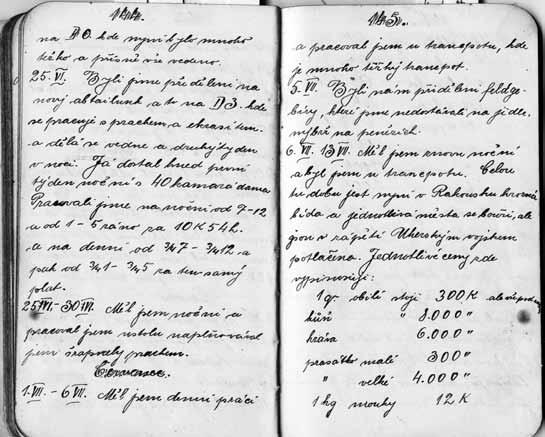 144.
na D O. kde nyní bylo mnoho
těžko a přísně vše vedeno.
25. VI. Byli jsme přiděleni na
nový abtailunk a to na D 3. kde
se pracuje s prachem a ekrasitem.
a dělá se ve dne a druhý týden
v noci. Já dostal hned první
týden noční s 40 kamarádama
Pracovali jsme na noční od 7-12
a od 1-5 ráno za 10 K 54 h.
a na denní od ¾7 - ¾12 a
pak od ¾1 - ¾5 za ten samý
plat.
25 VI. - 30 VI. Měl jsem noční a
pracoval jsem u stolu naplňoval
jsem šrapnely prachem.
Červenec.
1. VII. - 6 VII. Měl jsem denní práci
145.
a pracoval jsem u transportu, kde
je mnoho těžký transport.
5. VII. Byli nám přiděleni feldge-
béry, které jsme nedostávali na jídle,
nýbrž na penězích.
6. VII. 13 VII. Měl jsem znovu noční
a byl jsem u transportu. Celou
tu dobu jest nyní v Rakousku hrozná
bída a jednotlivá města se bouří, ale
jsou v zápětí Uherským vojskem
potlačena. Jednotlivé ceny zde
vypisuji:
1 q. obilí stojí 300 K
kůň 8.000 "
kráva 6.000 "
prasátko malé 300 "
" velké 4.000 "
1 kg mouky 12 K